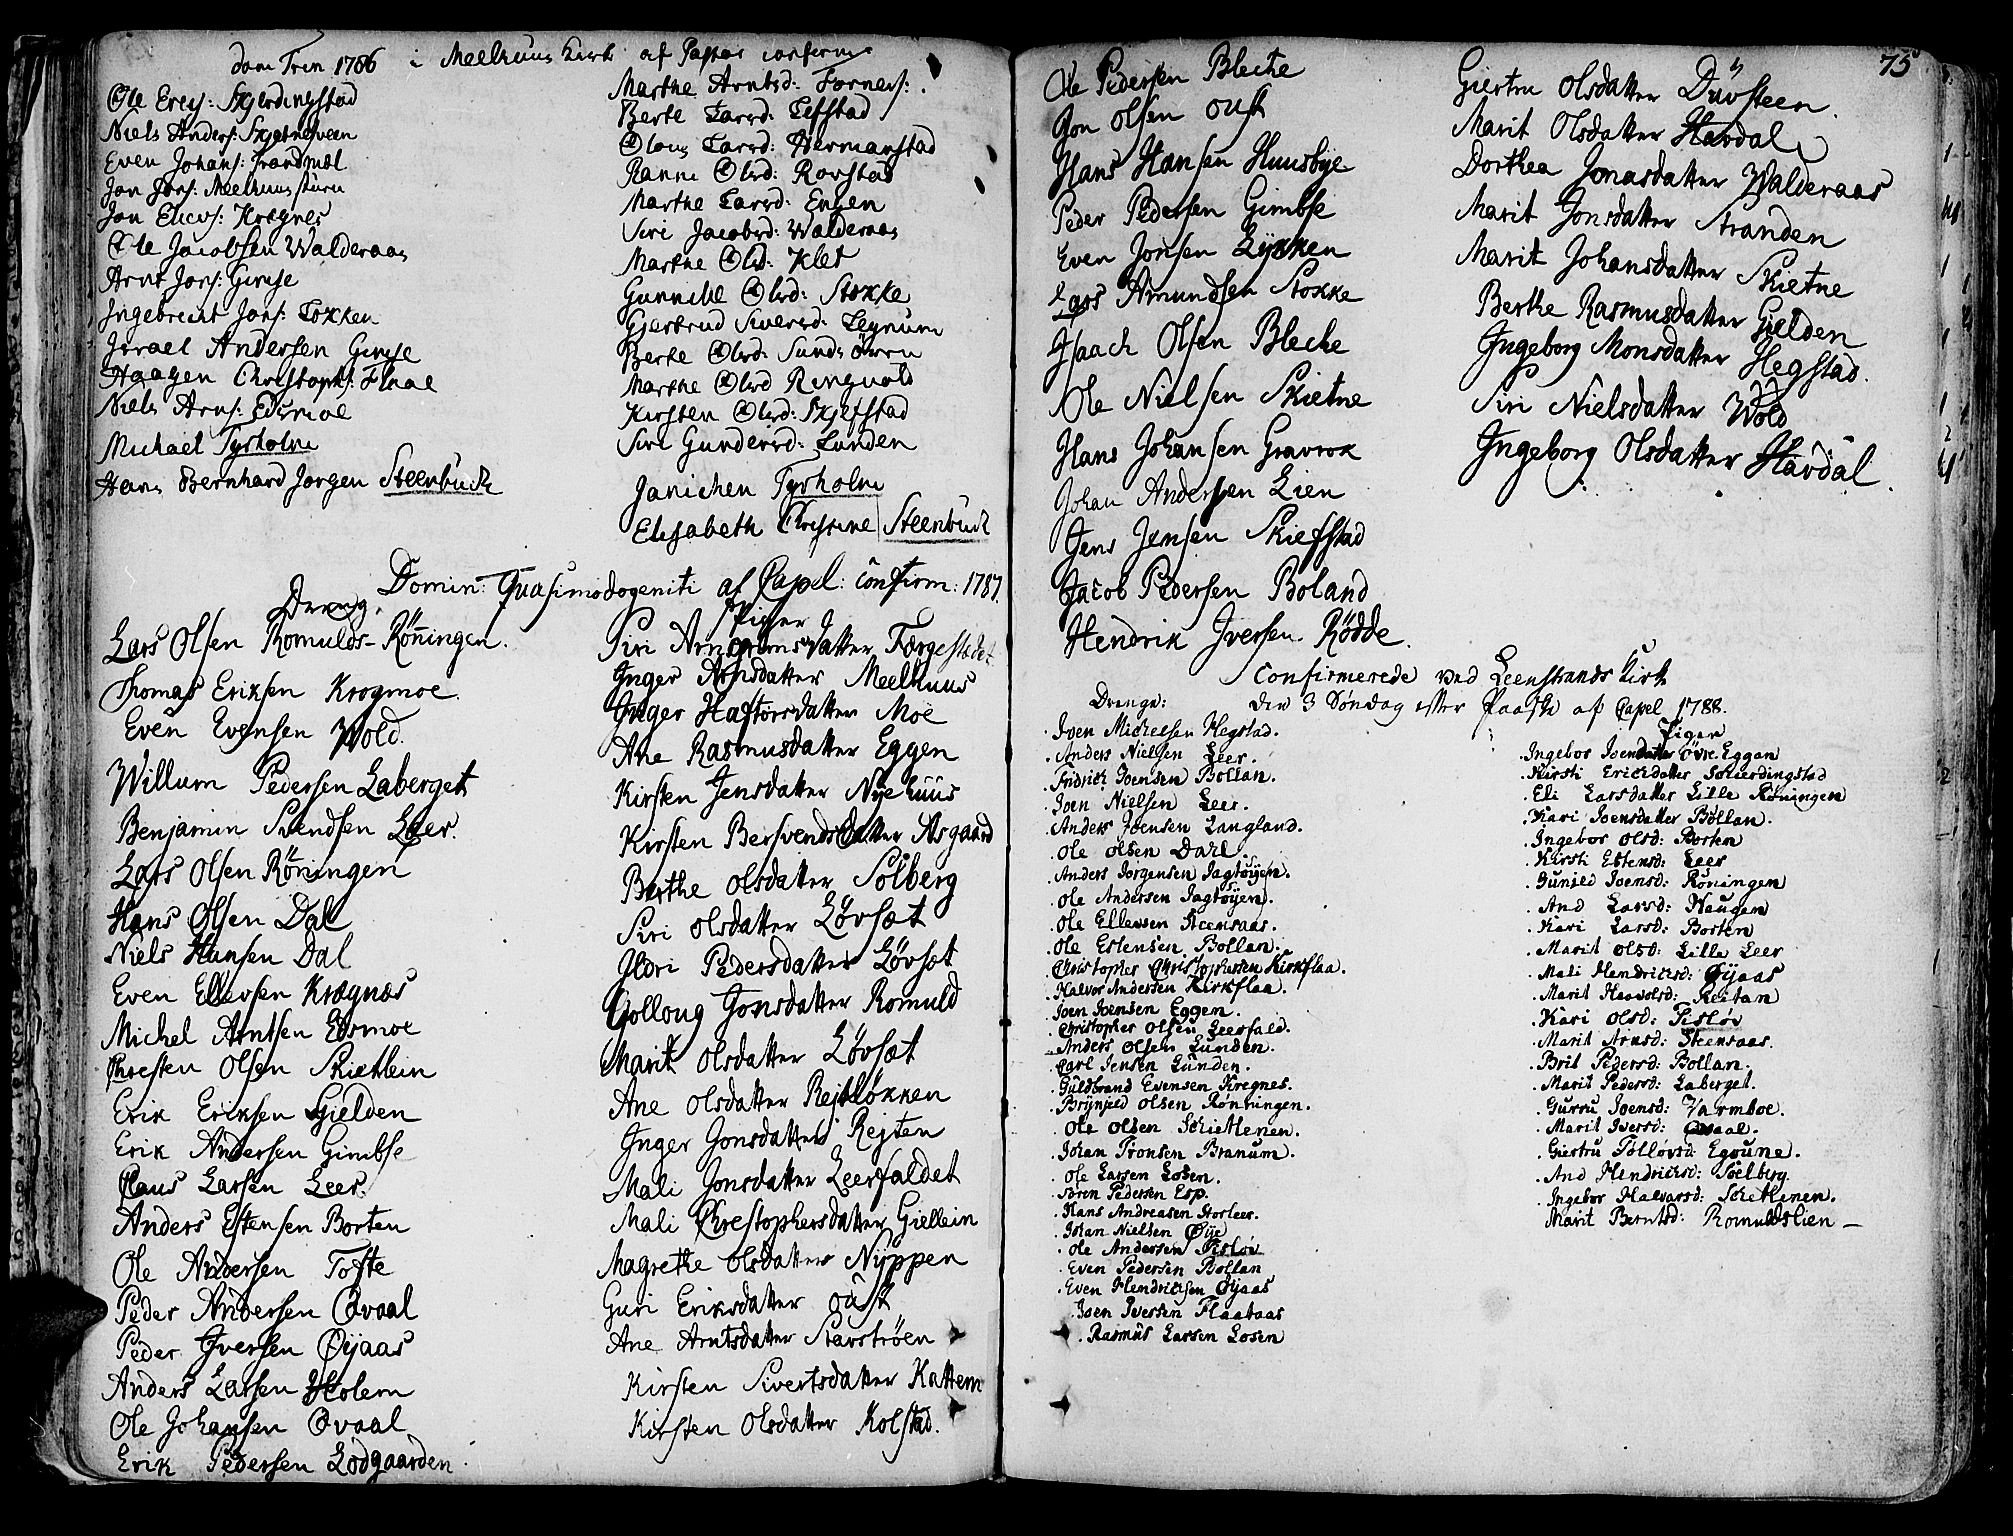 dom Trin 1786 i Meelhuus Kirk af Pastor conferm
Ole Erics: Skjerdingstad
Niels Anders: Skjetnesveen
Even Johans: Trandmæl
Jon Jons: Meelhuus
Jon Ellevs: Krægnes
Ole Jacobsen Walderaas
Arnt Jons: Gimse
Ingebrecht Jons: Løkken
Israel Andersen Gimse
Haagen Christophs: Flaae
Niels Arns: Edsmoe
Michael Tyrholm
Hans Bernhard Jørgen Steenbuch
Marthe Arntsd: Fornes:
Berte Larsd: Leffstad
Olous Larsd: Hermanstad
Ranni Olsd: Rovstad
Marthe Larsd: Engen
Siri Jacobsd: Walderaas
Marthe Olsd: Klet
Gunnild Olsd: Stokke
Gjertrud Siversd: Legnum
Berte Olsd: Sunds øren
Marthe Olsd Ringvold
Kirsten Olsd: Skjefstad
Siri Gundersd: Lunden
Janichen Tyrholm
Elisabeth Christine Steenbuch
Domin: Quasimodogeniti af Capel: confirm: 1787.
Dreng.
Lars Olsen Romulds-Röningen.
Thomas Eriksen Krogmoe.
Even Evensen Wold.
Willum Pedersen Laberget
Benjamin Svendsen Leer.
Lars Olsen Röningen
Hans Olsen Dal
Niels Hansen Dal
Even Ellevsen Krægnæs
Michel Arntsen Edsmoe
Chresten Olsen Skietlein
Erik Eriksen Gielden
Erik Andersen Gimbse
Claus Larsen Leer.
Anders Estensen Borten
Ole Andersen Tofte
Peder Andersen Qvaal
Peder Iversen Øÿaas
Anders Larsen Holem
Ole Johansen Qvaal
Erik Pedersen Lodgaarden.
Piger
Siri Arngrimsdatter Færgestædet
Inger Arnsdatter Meelhuus
Inger Haftorsdatter Moe
Ane Rasmusdatter Eggen
Kirsten Jensdatter Nyehuus
Kirsten Bersvendsdatter Asgaard
Berthe Olsdatter Sölberg
Siri Olsdatter Lövsæt
Ildri Pedersdatter Lövsæt
Golloug Jonsdatter Romuld
Marit Olsdatter Lövsæt
Ane Olsdatter Rejtløkken
Inger Jonsdatter Rejten
Mali Jonsdatter Leerfaldet
Mali Chrestophersdatter Giellein
Magrethe Olsdatter Nyppen
Guri Eriksdatter Oust
Ane Arntsdatter Størstrøen
Kirsten Sivertsdatter Kattem
Kirsten Olsdatter Kolstad.
75
Ole Pedersen Bleche
Jon Olsen Oust
Hans Hansen Huusbye
Peder Pedersen Gimbse
Even Jonsen Lykken
Lars Amundsen Stokke
Isaach Olsen Bleche
Ole Nielsen Skietne
Hans Johansen Gravrok
Johan Andersen Lien
Jens Jensen Skiefstad
Jacob Pedersen Boland
Hendrik Iversen. Rödde.
Giertru Olsdatter Duvsteen.
Marit Olsdatter Havdal
Dorthea Jonasdatter Walderaas
Marit Jonsdatter Stranden
Marit Johansdatter Skietne
Berthe Rasmusdatter Gielden
Ingeborg Monsdatter Hegstad.
Siri Nielsdatter Wold
Ingeborg Olsdatter Havdal.
Confirmerede ved Leenstrands Kirk
den 3 Søndag efter Paaske af Capel 1788.
Drenge:
Joen Michelsen Hegstad.
Anders Nielsen Leer.
Fridrich Joensen Bollan.
Joen Nielsen Leer.
Anders Joensen Langland.
Ole Olsen Dahl
Anders Jørgensen Jagtøyen.
Ole Andersen Jagtøyen.
Ole Ellevsen Steensaas.
Ole Estensen Bollan.
Christopher Christophersen Kirkflaa.
Halvor Andersen Kirkflaa.
Joen Joensen Eggen.
Christopher Olsen Leerfald.
Anders Olsen Lunden.
Carl Jensen Lunden.
Guldbrand Evensen Kregnes.
Brynjeld Olsen Rønningen.
Ole Olsen Schietlenen.
Johan Tronsen Branum.
Ole Larsen Losen.
Søren Pedersen Esp.
Hans Andreasen Horleer.
Johan Nielsen Øye
Ole Andersen Tisløv
Even Pedersen Bollan
Even Hendrichsen Øyaas
Joen Iversen Flaataas
Rasmus Larsen Losen
Piger
Ingebor Joensdatter Øvre Eggan
Kirsti Erichdatter Schierdingstad
Eli Larsdatter Lille Røningen
Kari Joensdatter Bøllan.
Ingebor Olsd: Borten
Kirsti Estensd: Leer
Gunild Joensd: Røningen
And Larsd: Haugen
Kari Larsd: Borten
Marit Olsd: Lille Leer
Mali Hendrichsd: Øyaas
Marit Haavolsd: Reitan
Kari Olsd: Tisløv
Marit Arnsd: Steensaas.
Brit Pedersd: Bollan.
Marit Pedersd: Laberget.
Gurru Joensd: Varmboe.
Marit Iversd: Qvaal.
Giertru Tølløvsd: Egoune.
And Hendrichsd: Soelberg
Ingebor Halvorsd: Schetlenen.
Marit Berntsd: Romuldslien